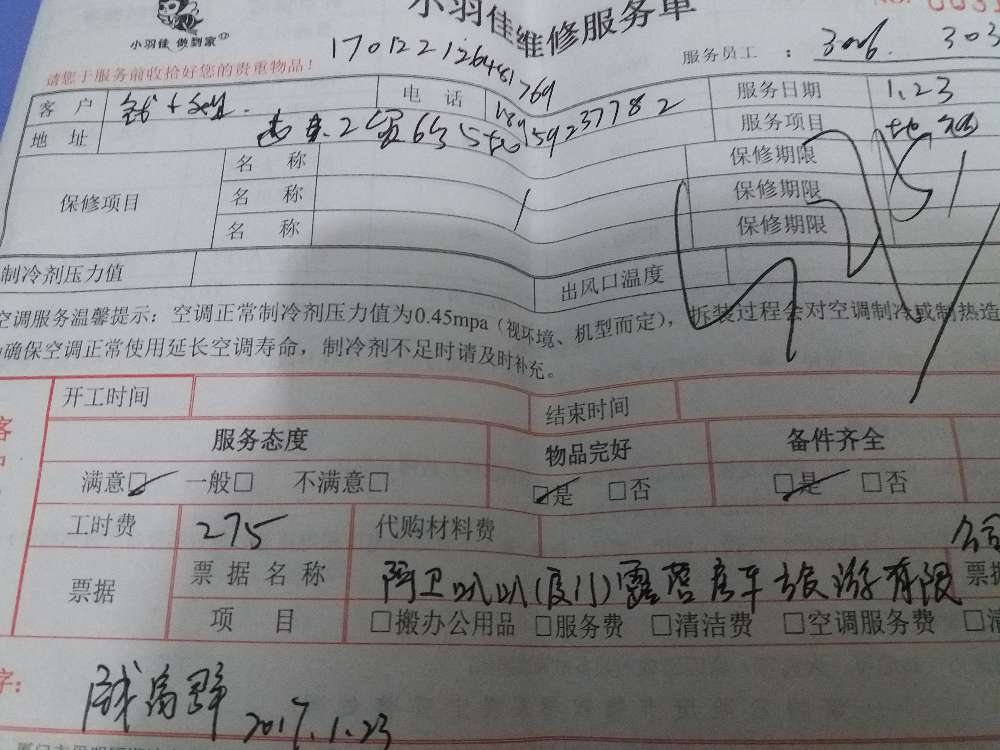 小羽佳维修服务单
小羽佳 做到家
请您于服务前收拾好您的贵重物品!
17012212648 1769
服务员工 : 3006. 303
客 户 电 话 服务日期 1.23
地 址 15923 7782 服务项目
保修项目 名 称 保修期限
名 称 保修期限
名 称 保修期限
制冷剂压力值 出风口温度
空调服务温馨提示:空调正常制冷剂压力值为0.45mpa(视环境、机型而定),拆装过程会对空调制冷或制热造
确保空调正常使用延长空调寿命,制冷剂不足时请及时补充。
开工时间 结束时间
服务态度 物品完好 备件齐全
满意☑ 一般□ 不满意□ ☑是 □否 ☑是 □否
工时费 275 代购材料费
票据 票据名称 阿卫叭叭(厦门)露营房车旅游有限公司 票据
项 目 □搬办公用品 □服务费 □清洁费 □空调服务费 □清
字:
2017.1.23